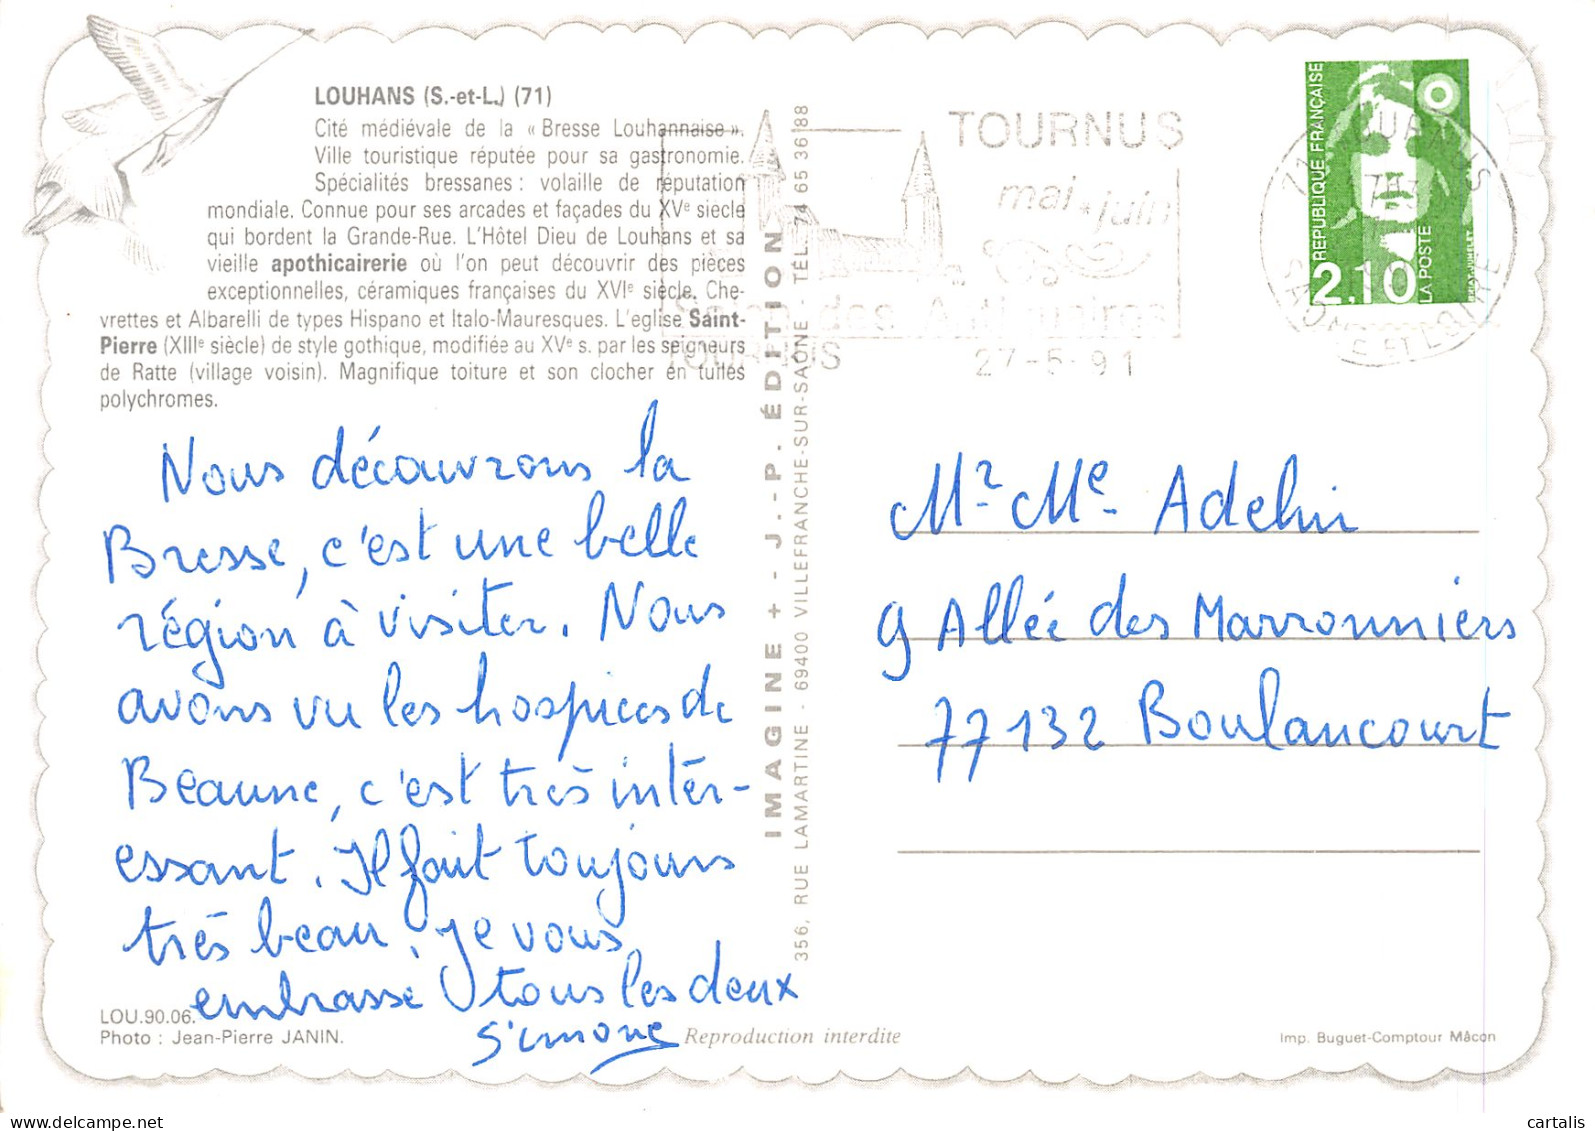 LOUHANS (S.-et-L.) (71)
Cité médiévale de la « Bresse Louhannaise ».
Ville touristique réputée pour sa gastronomie.
Spécialités bressanes : volaille de réputation
mondiale. Connue pour ses arcades et façades du XVe siecle
qui bordent la Grande-Rue. L'Hôtel Dieu de Louhans et sa
vieille apothicairerie où l'on peut découvrir des pièces
exceptionnelles, céramiques françaises du XVIe siècle. Che-
vrettes et Albarelli de types Hispano et Italo-Mauresques. L'eglise Saint-
Pierre (XIIIe siècle) de style gothique, modifiée au XVe s. par les seigneurs
de Ratte (village voisin). Magnifique toiture et son clocher en tuiles
polychromes.
Nous découvrons la
Bresse, c'est une belle
région à visiter. Nous
avons vu les hospices de
Beaune, c'est très intér-
essant. Il fait toujours
très beau. Je vous
embrasse tous les deux
Simone
LOU.90.06.
Photo : Jean-Pierre JANIN.
Reproduction interdite
IMAGINE + - J.-P. ÉDITION
356, RUE LAMARTINE - 69400 VILLEFRANCHE-SUR-SAÔNE - TÉL. 74 65 36 88
TOURNUS
mai - juin
Salon des Antiquaires
TOURNUS
27-5-91
71 TOURNUS
SAONE ET LOIRE
REPUBLIQUE FRANÇAISE
2,10
LA POSTE
Mr Me Adelin
9 Allée des Marronniers
77132 Boulancourt
Imp. Buguet-Comptour Mâcon
delcampe.net
cartalis